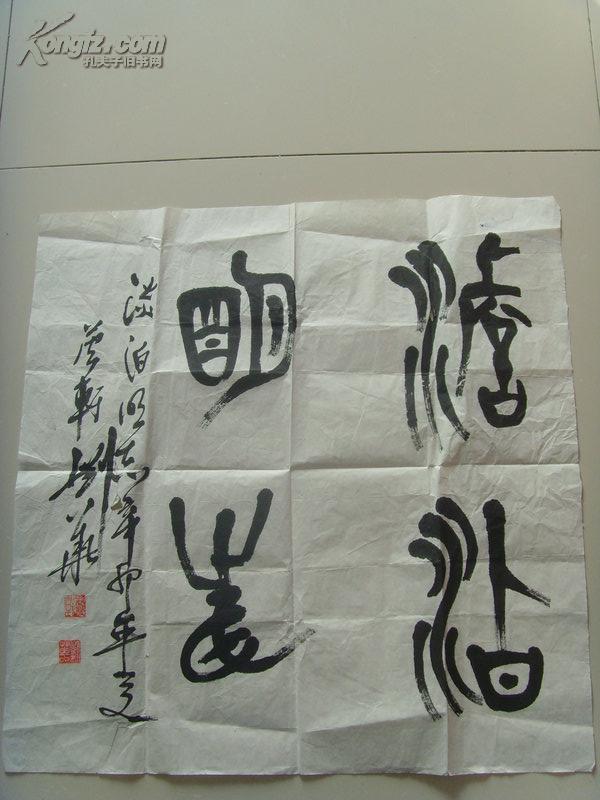 Kongfz.com
孔夫子旧书网
澹泊
明志
淡泊明志辛卯年夏
軒